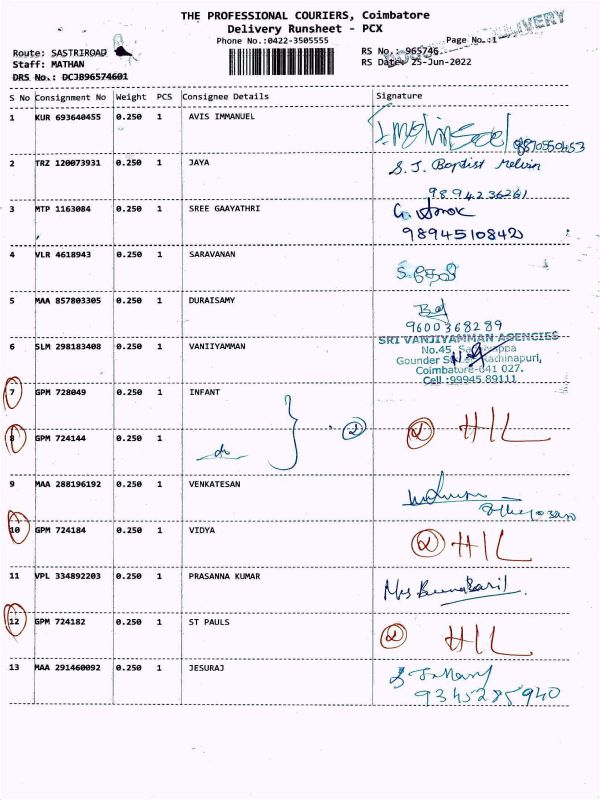 THE PROFESSIONAL COURIERS, Coimbatore
Delivery Runsheet - PCX
Phone No.:0422-3505555
Page No.:1
DELIVERY
Route: SASTRIROAD
RS No.: 965746
Staff: MATHAN
RS Date: 25-Jun-2022
DRS No.: DCJB96574601
S No Consignment No Weight PCS Consignee Details Signature
1 KUR 693640455 0.250 1 AVIS IMMANUEL
9870550453
2 TRZ 120073931 0.250 1 JAYA S. J. Baptist Melvin
9894236261
3 MTP 1163084 0.250 1 SREE GAAYATHRI G. Ashok
9894510842
4 VLR 4618943 0.250 1 SARAVANAN S. தேவி
5 MAA 857803305 0.250 1 DURAISAMY
9600368289
SRI VANJIYAMMAN AGENCIES
6 SLM 298183408 0.250 1 VANJIYAMMAN No.45,
Gounder
Coimbatore-641 027.
Cell :99945 89111
7 GPM 728049 0.250 1 INFANT
8 GPM 724144 0.250 1 do } ② ② HIL
9 MAA 288196192 0.250 1 VENKATESAN
10 GPM 724184 0.250 1 VIDYA ② HIL
11 VPL 334892203 0.250 1 PRASANNA KUMAR
12 GPM 724182 0.250 1 ST PAULS ② HIL
13 MAA 291460092 0.250 1 JESURAJ
9345285940